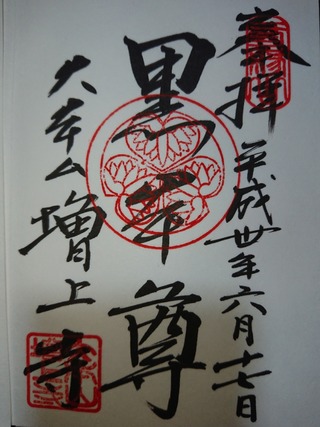 奉拝 平成卅年六月十七日
黒本尊
大本山増上寺